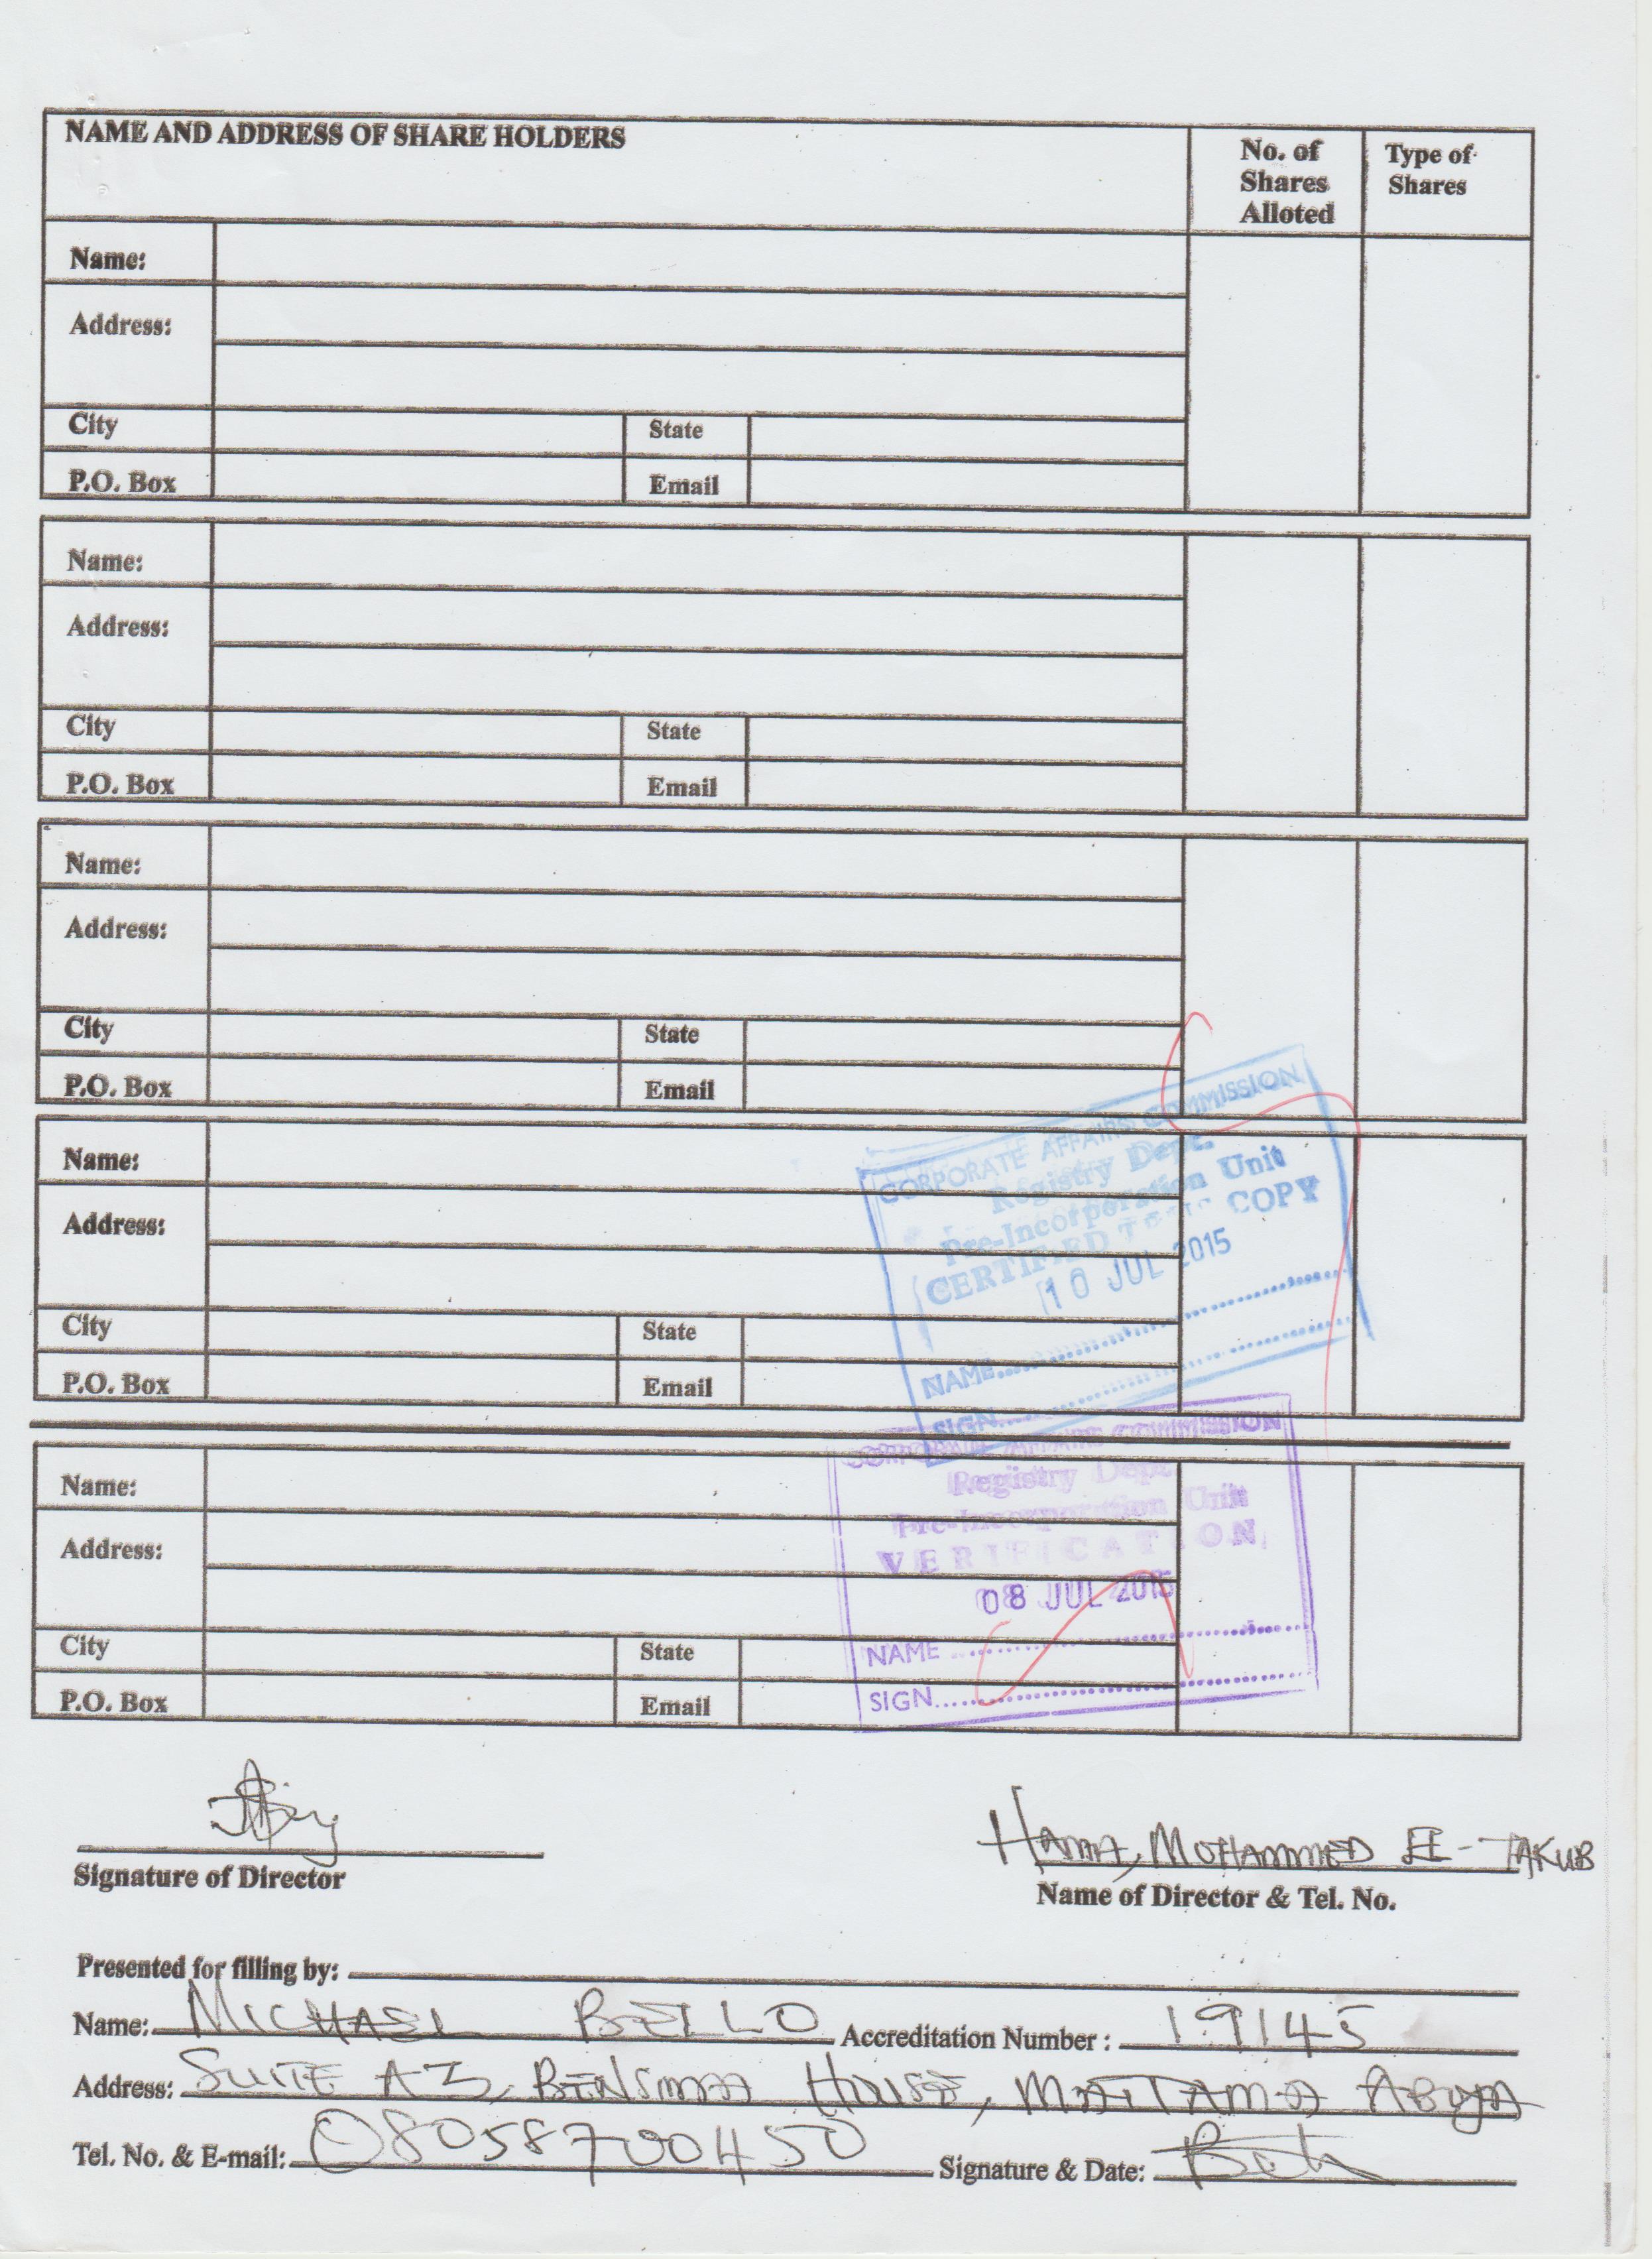 NAME AND ADDRESS OF SHARE HOLDERS
No. of Shares Alloted
Type of Shares
Name:
Address:
City
State
P.O. Box
Email
Name:
Address:
City
State
P.O. Box
Email
Name:
Address:
City
State
P.O. Box
Email
Name:
Address:
City
State
P.O. Box
Email
CORPORATE AFFAIRS COMMISSION
Registry Dept.
Pre-Incorporation Unit
CERTIFIED COPY
10 JUL 2015
NAME
SIGN
Name:
Address:
City
State
P.O. Box
Email
CORPORATE AFFAIRS COMMISSION
Registry Dept.
Pre-Incorporation Unit
VERIFICATION
08 JUL 2015
NAME
SIGN
MOHAMMED
Signature of Director
Name of Director & Tel. No.
Presented for filling by:
Name: MICHAEL BELLO Accreditation Number : 19145
Address: SUITE HOUSE, MAITAMA ABUJA
Tel. No. & E-mail: 08058700450 Signature & Date: